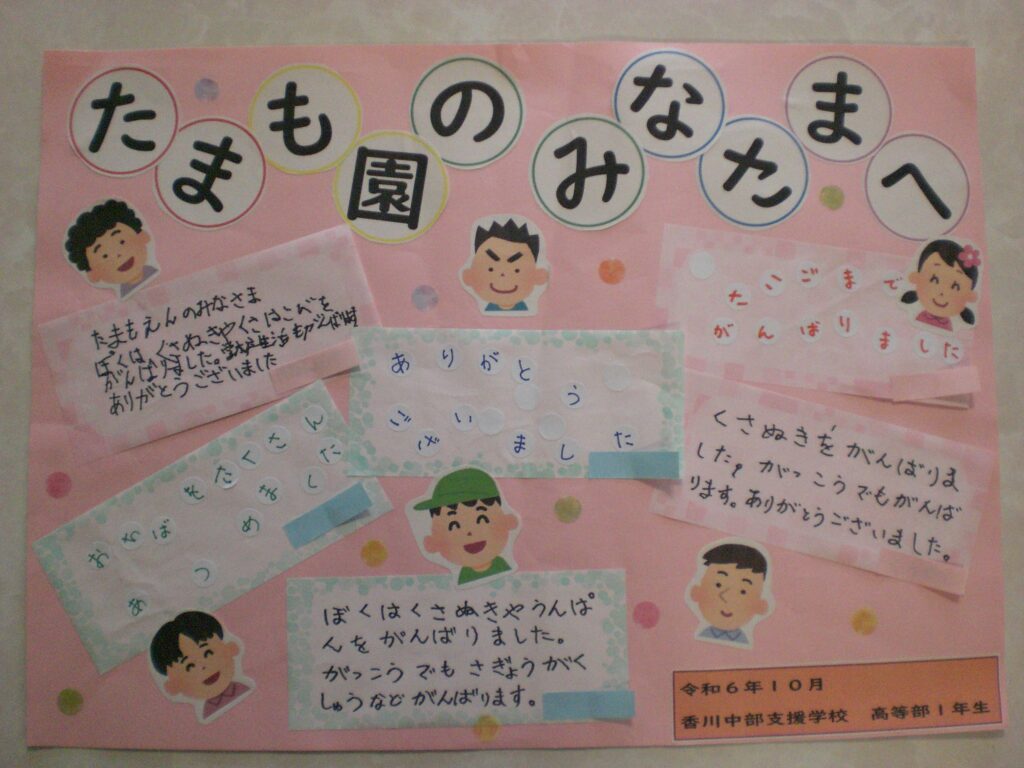 たまも園のみなさまへ
たまもえんのみなさま
ぼくは、くさぬきやくさはこびを
がんばりました。生活もがんばります
ありがとうございました
ありがとう
ございました
さいごまで
がんばりました
おちばをたくさん
あつめました
くさぬきをがんばりま
した。がっこうでもがんば
ります。ありがとうございました。
ぼくはくさぬきやうんぱ
んをがんばりました。
がっこうでもさぎょうがく
しゅうなどがんばります。
令和6年10月
香川中部支援学校　高等部1年生